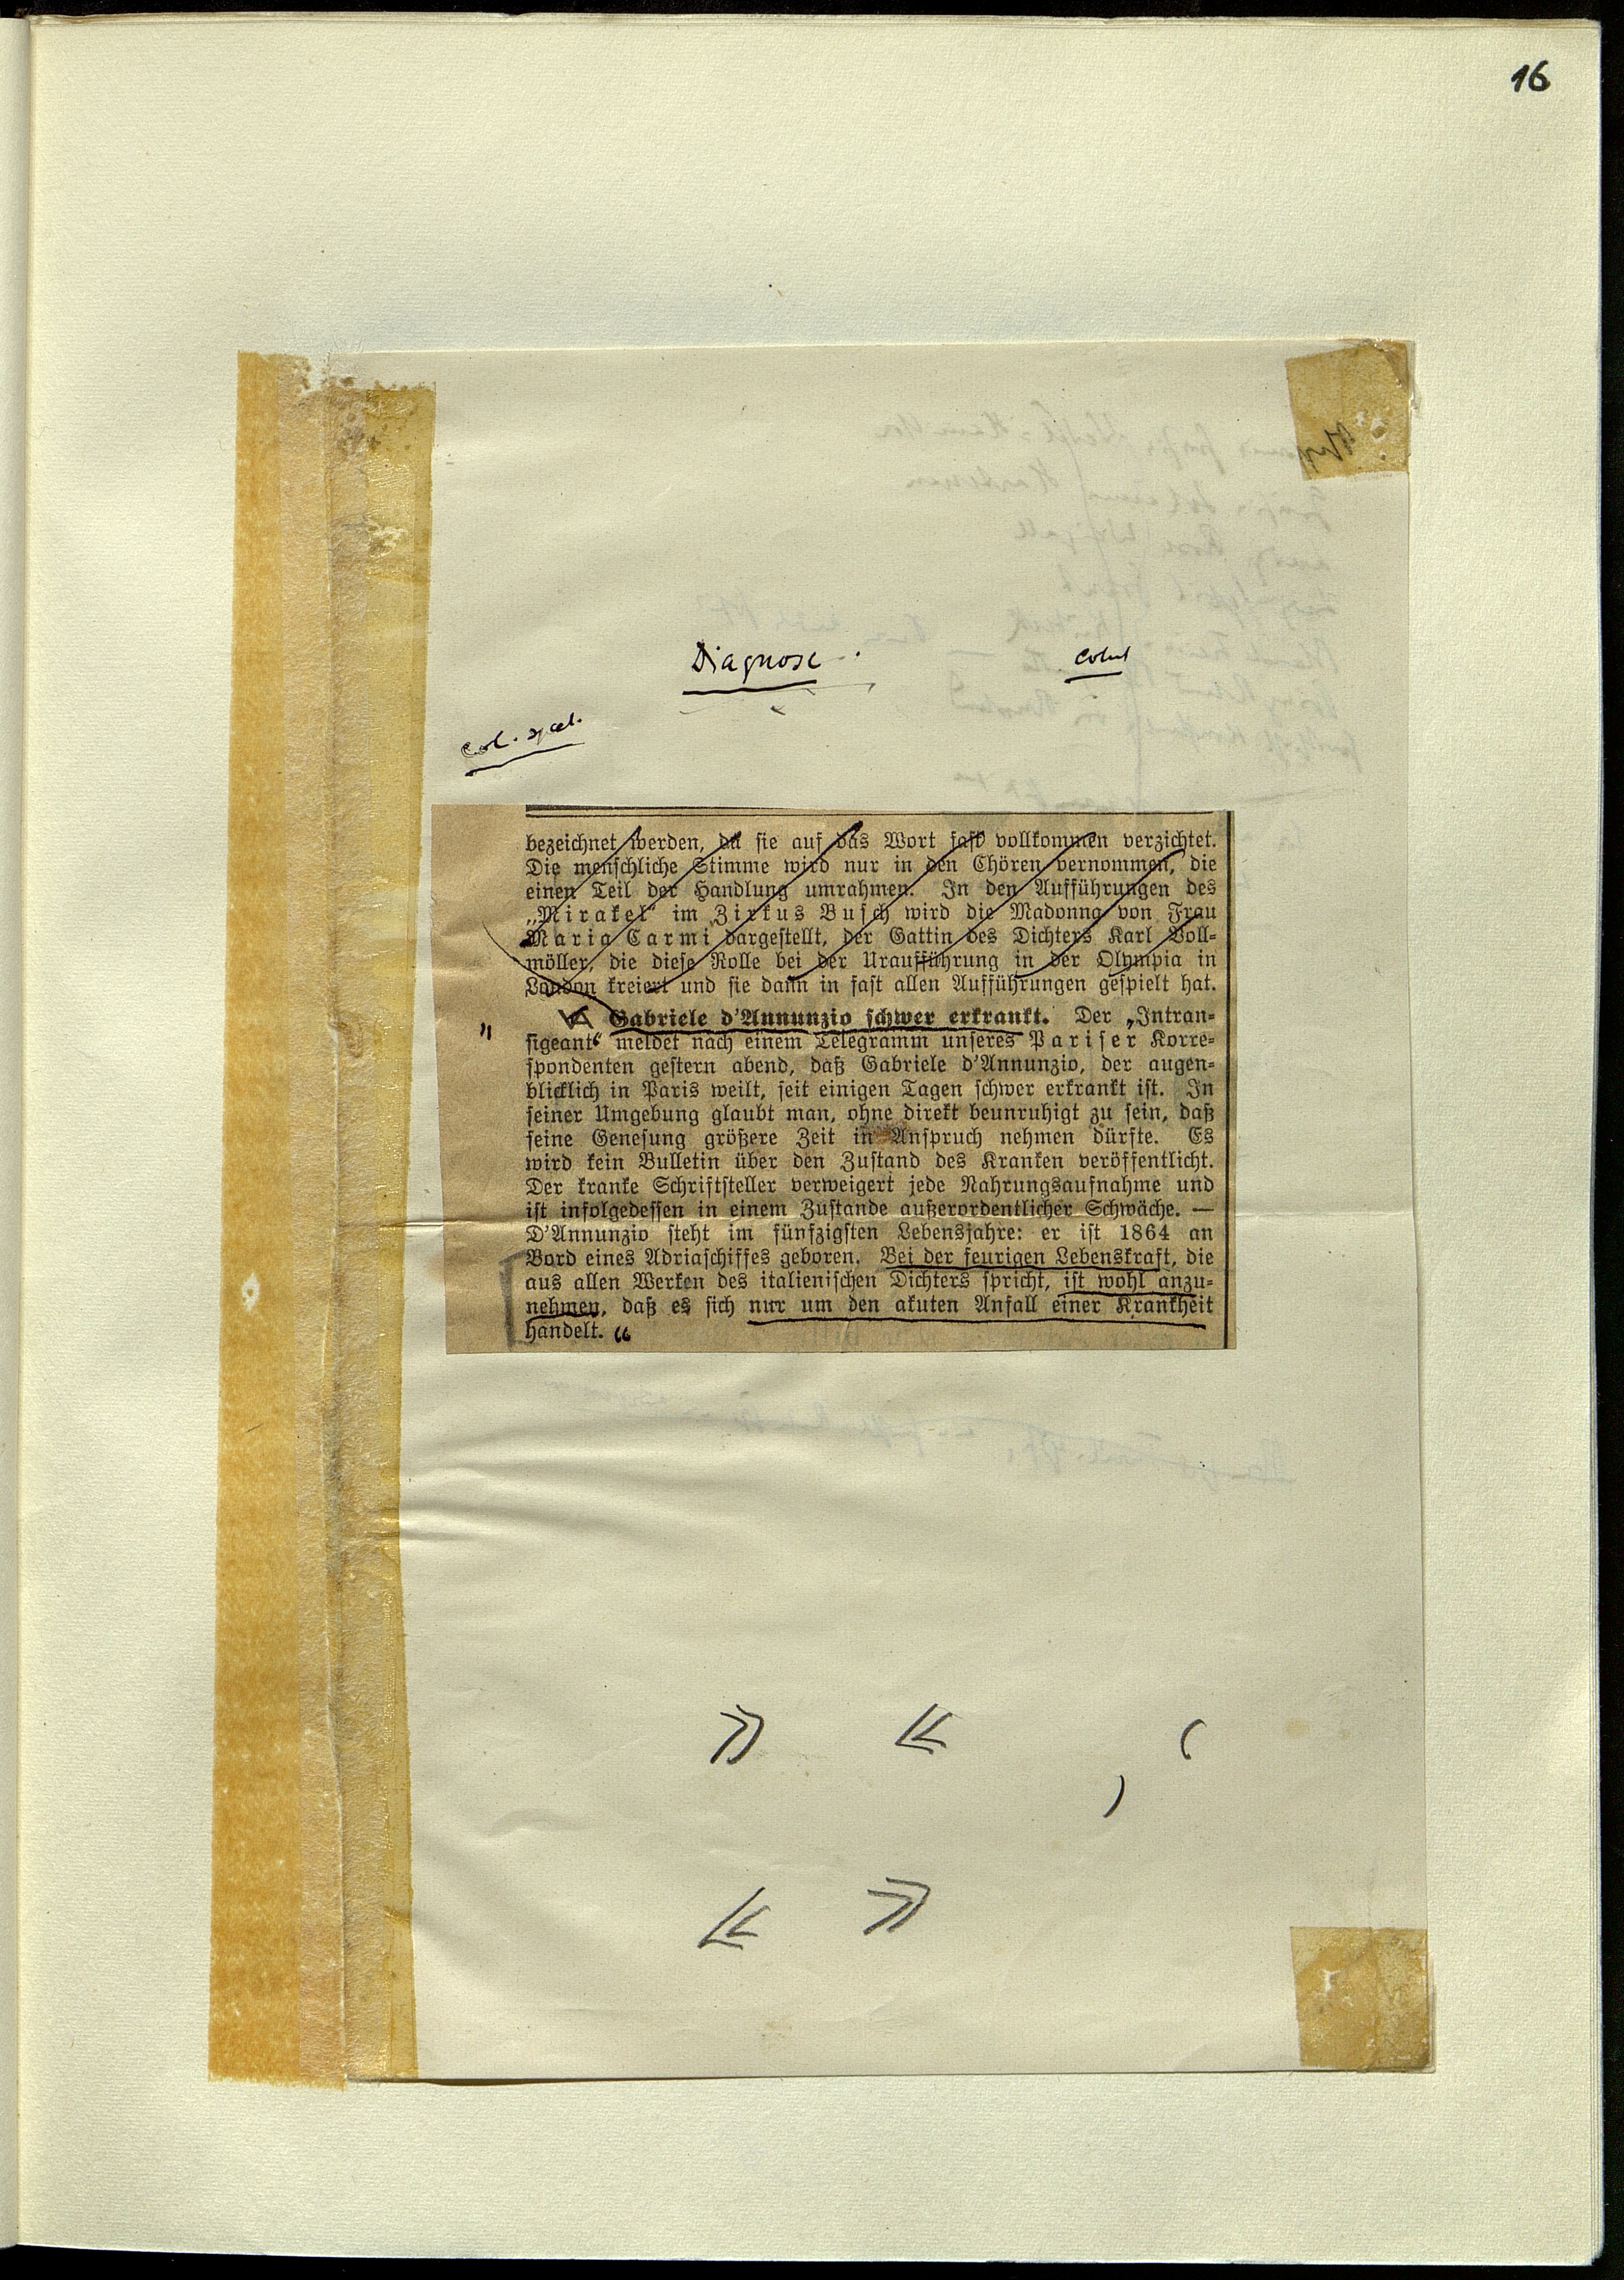 16
Diagnose.
bezeichnet werden, da sie auf das Wort fast vollkommen verzichtet.
Die menschliche Stimme wird nur in den Chören vernommen, die
einen Teil der Handlung umrahmen. In den Aufführungen des
„Mirakel“ im Zirkus Busch wird die Madonna von Frau
Maria Carmi dargestellt, der Gattin des Dichters Karl Voll-
möller, die diese Rolle bei der Uraufführung in der Olympia in
London kreiert und sie dann in fast allen Aufführungen gespielt hat.
" Gabriele d'Annunzio schwer erkrankt. Der „Intran-
sigeant“ meldet nach einem Telegramm unseres Pariser Korre-
spondenten gestern abend, daß Gabriele d'Annunzio, der augen-
blicklich in Paris weilt, seit einigen Tagen schwer erkrankt ist. In
seiner Umgebung glaubt man, ohne direkt beunruhigt zu sein, daß
seine Genesung größere Zeit in Anspruch nehmen dürfte. Es
wird kein Bulletin über den Zustand des Kranken veröffentlicht.
Der kranke Schriftsteller verweigert jede Nahrungsaufnahme und
ist infolgedessen in einem Zustande außerordentlicher Schwäche. —
D'Annunzio steht im fünfzigsten Lebensjahre: er ist 1864 an
Bord eines Adriaschiffes geboren. Bei der feurigen Lebenskraft, die
aus allen Werken des italienischen Dichters spricht, ist wohl anzu-
nehmen, daß es sich nur um den akuten Anfall einer Krankheit
handelt. “
» «
« »